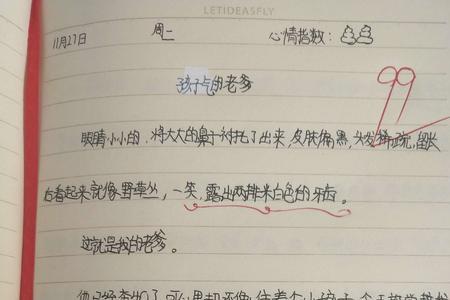 LETIDEASFLY
11月27日 周二 心情指数：
孩子气的老爹
99
眼睛小小的，将大大的鼻子衬托了出来，皮肤偏黑，头发稀疏，留长
后看起来就像野草丛，一笑，露出两排米白色的牙齿。
这就是我的老爹。